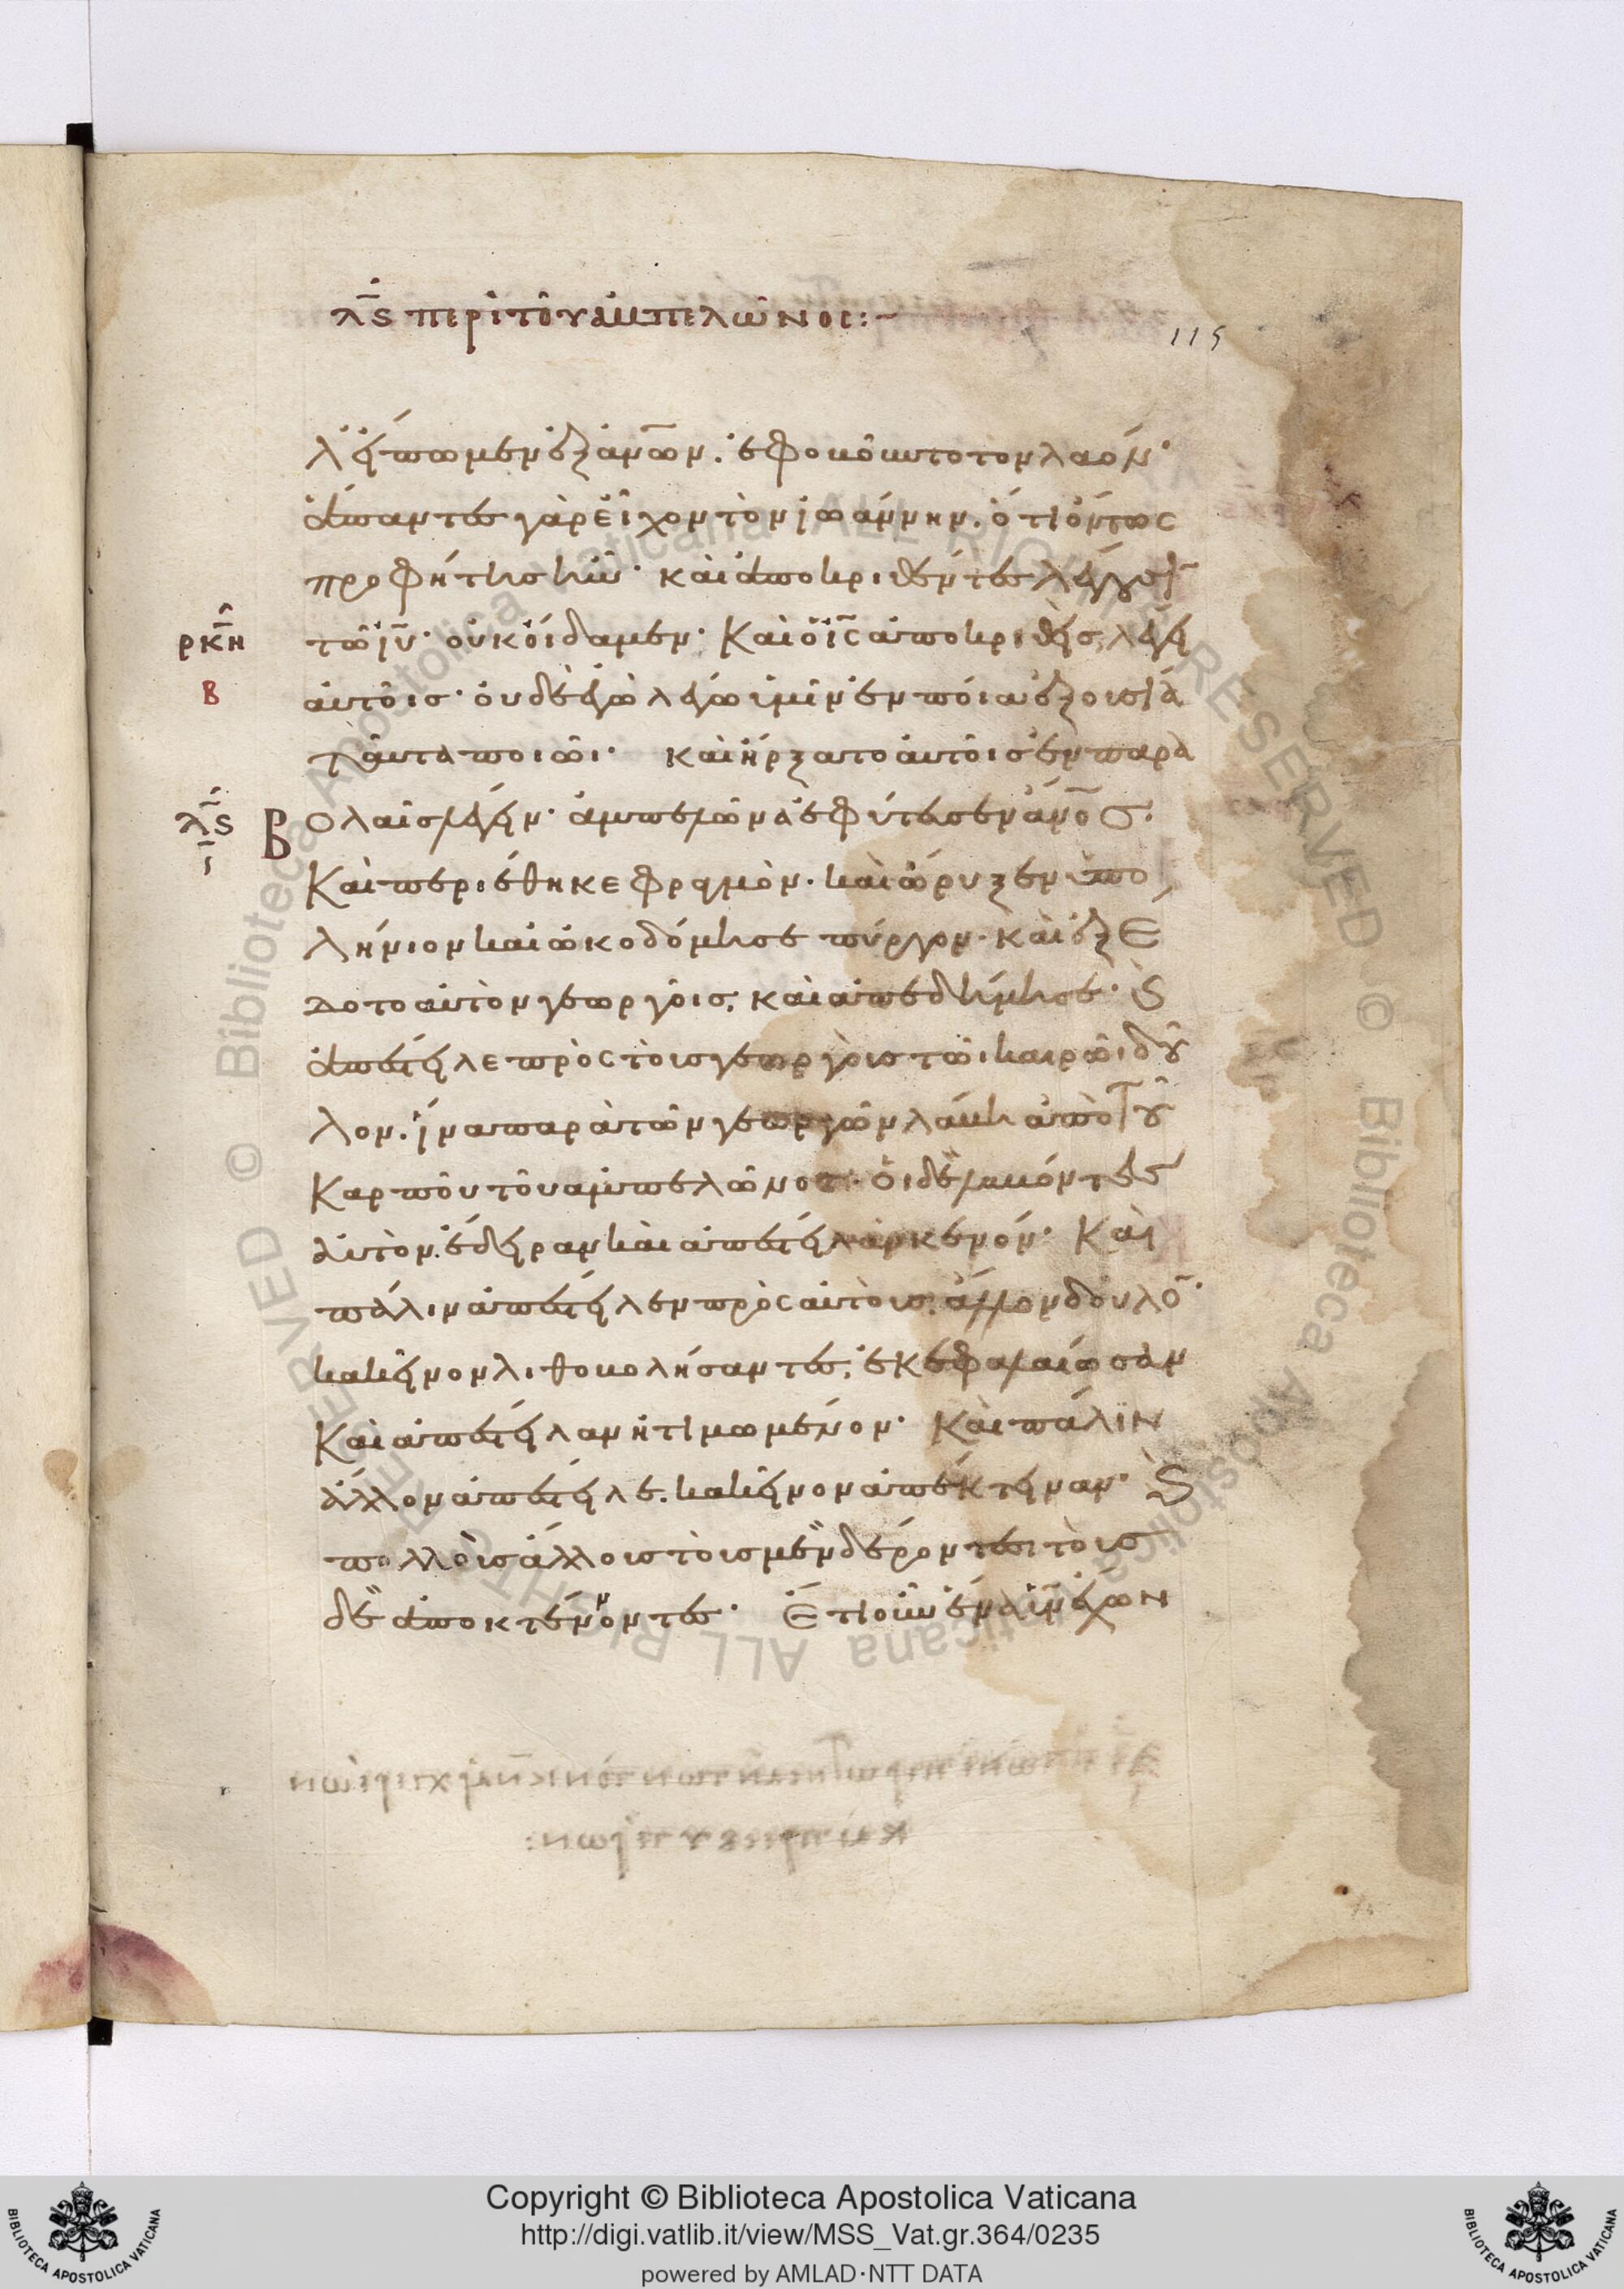 λ̅ς περὶ τοῦ ἀμπελῶνος:~
115
λείπωμεν ἐξ ἀν̅ων. ἐφοβοῦντο τὸν λαόν·
ἅπαντες γὰρ εἶχον τὸν ἰωάννην. ὅτι ὄντως
προφήτης ἦν· καὶ ἀποκριθέντες λέγουσι
ρκ̅η τῶ ι̅υ· οὐκ οἴδαμεν· Καὶ ὁ ι̅ς ἀποκριθεὶς, λέγει
β αὐτοῖς· οὐδὲ ἐγὼ λέγω ὑμῖν ἐν ποία ἐξουσία
ταῦτα ποιῶι· καὶ ἤρξατο αὐτοῖς ἐν παρα
λ̅ς βολαῖς λέγειν· ἀμπελῶνα ἐφύτευσεν ἄν̅ος·
ι̅ Καὶ περιέθηκε φραγμὸν· καὶ ὤρυξεν ὑπο
λήνιον καὶ ὠκοδόμησε πύργον· καὶ ἐξέ
δοτο αὐτὸν γεωργοῖς, καὶ ἀπεδήμησε· Ϛ
ἀπέστειλε πρὸς τοὺς γεωργοὺς τῶι καιρῶι δοῦ
λον. ἵνα παρὰ τῶν γεωργῶν λάβη ἀπὸ τοῦ
Καρποῦ τοῦ ἀμπελῶνος· οἱ δὲ λαβόντες
αὐτὸν. ἔδειραν καὶ ἀπέστειλαν κενόν· Καὶ
πάλιν ἀπέστειλεν πρὸς αὐτοὺς, ἄλλον δοῦλον·
κακεῖνον λιθοβολήσαντες, ἐκεφαλαίωσαν
Καὶ ἀπέστειλαν ἠτιμωμένον· Καὶ πάλιν
ἄλλον ἀπέστειλε. κακεῖνον ἀπέκτειναν· Ϛ
πολλοὺς ἄλλους τοὺς μὲν δέροντες, τοὺς
δὲ ἀποκτέννοντες· Ἔτι οὖν ἕνα υ̅ν ἔχων
Copyright © Biblioteca Apostolica Vaticana
http://digi.vatlib.it/view/MSS_Vat.gr.364/0235
powered by AMLAD·NTT DATA